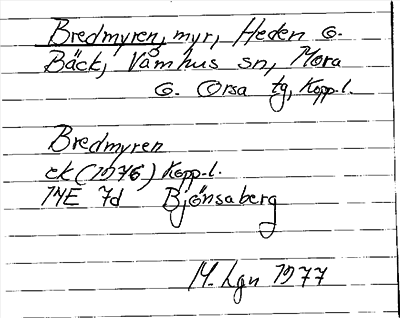 Bredmyren, myr, Heden o.
Bäck, Våmhus sn, Mora
o. Orsa tg, Kopp.l.
Bredmyren
ek (1976) Kopp.l.
14E 7d Björnsaberg
M. Lgn 1977